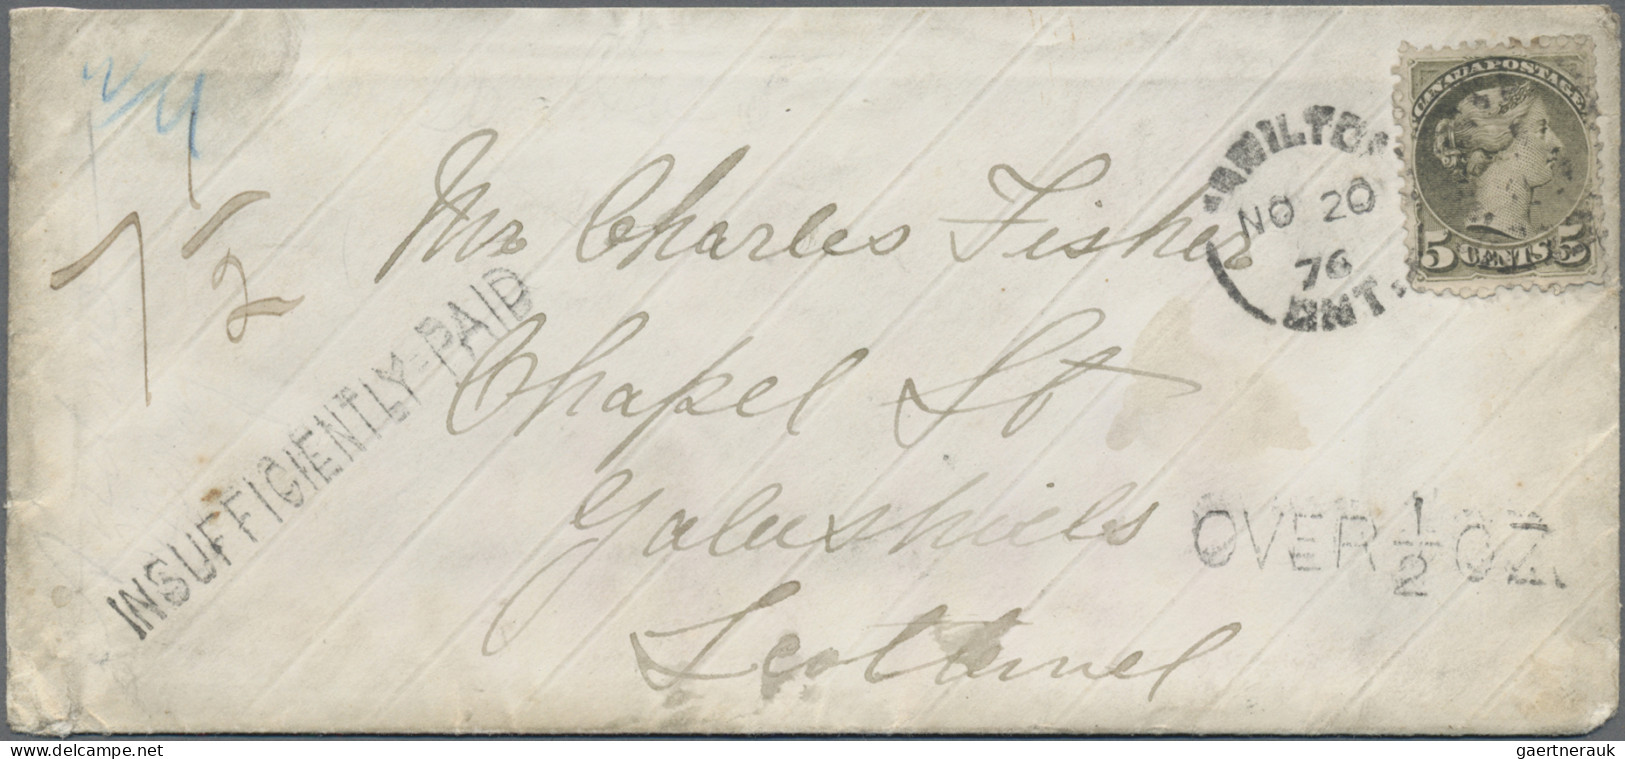 7 1/2
Mr Charles Fisher
Chapel St
Galashiels
Scotland
INSUFFICIENTLY-PAID
OVER 1/2 OZ.
HAMILTON
NO 20
76
ONT.
CANADA POSTAGE
5 CENTS 5
gaertnerauk
www.delcampe.net